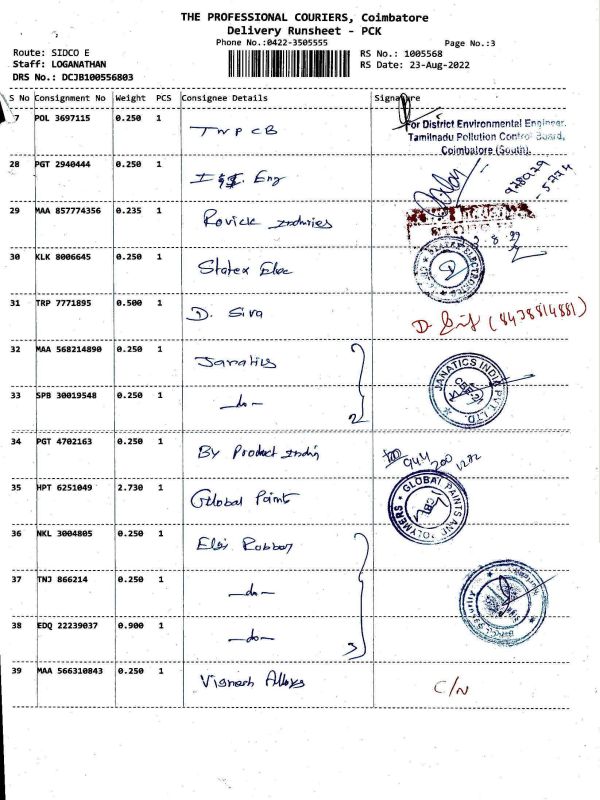 THE PROFESSIONAL COURIERS, Coimbatore
Delivery Runsheet - PCK
Phone No.:0422-3505555
Page No.:3
Route: SIDCO E
RS No.: 1005568
Staff: LOGANATHAN
RS Date: 23-Aug-2022
DRS No.: DCJB100556803
S No Consignment No Weight PCS Consignee Details Signature
7 POL 3697115 0.250 1 TNPCB
For District Environmental Engineer,
Tamilnadu Pollution Control Board,
Coimbatore (South).
28 PGT 2940444 0.250 1 Eng
29 MAA 857774356 0.235 1 Rovick Industries
30 KLK 8006645 0.250 1 Statex Elec
STATEX ELECTRONICS
31 TRP 7771895 0.500 1 D. Siva
D. (8438814881)
32 MAA 568214890 0.250 1 Janatics
33 SPB 30019548 0.250 1 -do- 2
JANATICS INDIA PVT. LTD.
34 PGT 4702163 0.250 1 By Product Indis
944 200 1272
35 HPT 6251049 2.730 1 Global Paints
GLOBAL PAINTS AND POLYMERS
CBE
36 NKL 3004805 0.250 1 Elgi Rubber
37 TNJ 866214 0.250 1 -do-
38 EDQ 22239037 0.900 1 -do- 3
Security
39 MAA 566310843 0.250 1 Vignesh Alloys C/N